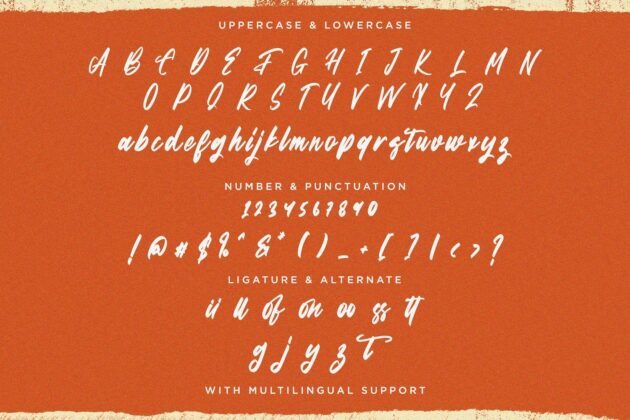 UPPERCASE & LOWERCASE
A B C D E F G H I J K L M N
O P Q R S T U V W X Y Z
abcdefghijklmnopqrstuvwxyz
NUMBER & PUNCTUATION
1234567890
! @ # $ % ^ & * ( ) _ + [ ] | < > ?
LIGATURE & ALTERNATE
ii ll of on oo ss tt
g j y z T
WITH MULTILINGUAL SUPPORT